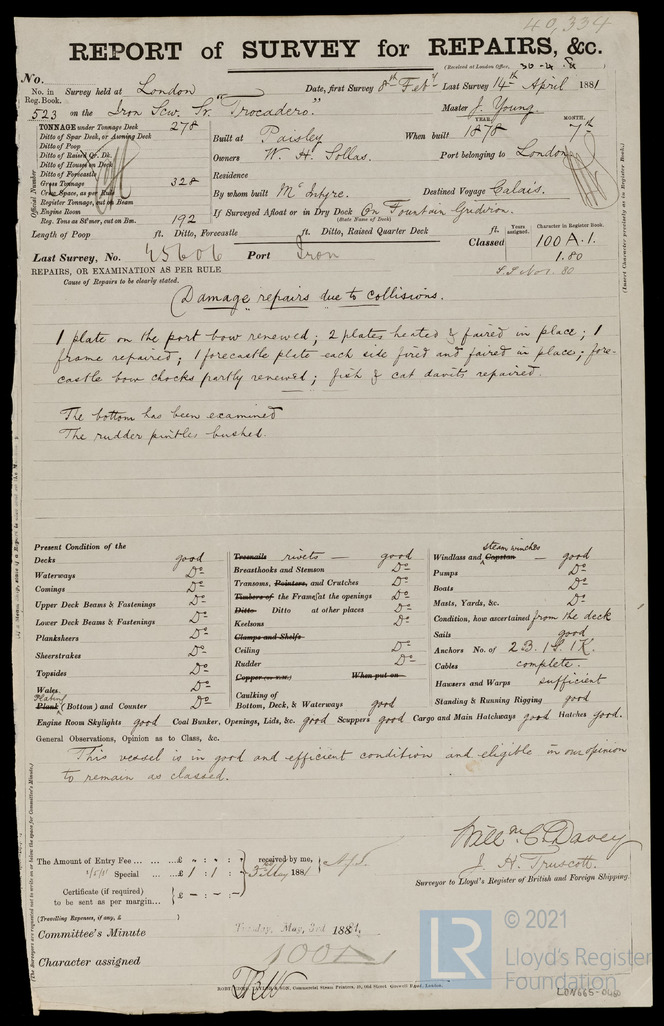 40,334
REPORT of SURVEY for REPAIRS, &c.
(Received at London Office, 30-4-8
No.
No. in Survey held at London Date, first Survey 8th Feby Last Survey 14th April 1881
Reg. Book.
523 on the Iron Scw. Sr. "Trocadero." Master J. Young.
TONNAGE under Tonnage Deck 278
Ditto of Spar Deck, or Awning Deck
Ditto of Poop
Ditto of Raised Qr. Dk.
Ditto of House on Deck
Ditto of Forecastle
Gross Tonnage 328
Crew Space, as per Rule
Register Tonnage, cut on Beam
Engine Room
Reg. Tons as St'mer, cut on Bm. 192
Official Number
Built at Paisley When built YEAR. 1878 MONTH. 7th
Owners W. H. Sollas. Port belonging to London
Residence
By whom built McIntyre. Destined Voyage Calais.
If Surveyed Afloat or in Dry Dock On Fountain Gridiron.
(State Name of Dock)
Length of Poop ft. Ditto, Forecastle ft. Ditto, Raised Quarter Deck ft.
Years assigned. Character in Register Book.
Classed 100 A.1.
1.80
S.S Nov. 80
(Insert Character precisely as in Register Book.)
Last Survey, No. 45606 Port Iron
REPAIRS, OR EXAMINATION AS PER RULE
Cause of Repairs to be clearly stated.
(Damage repairs due to collisions.
1 plate on the port bow renewed; 2 plates heated & faired in place; 1
frame repaired; 1 forecastle plate each side fired and faired in place; fore-
castle bow chocks partly renewed; fish & cat davits repaired.
The bottom has been examined
The rudder pintles bushed.
Present Condition of the
Decks good
Waterways Do
Comings Do
Upper Deck Beams & Fastenings Do
Lower Deck Beams & Fastenings Do
Planksheers Do
Sheerstrakes Do
Topsides Do
Wales Do
Plating
Plank (Bottom) and Counter Do
Treenails rivets — good
Breasthooks and Stemson Do
Transoms, Pointers, and Crutches Do
Timbers of the Frame at the openings Do
Ditto Ditto at other places Do
Keelsons Do
Clamps and Shelfs
Ceiling Do
Rudder Do
Copper (or Y.M.) When put on
Caulking of
Bottom, Deck, & Waterways good
steam winches
Windlass and Capstan — good
Pumps Do
Boats Do
Masts, Yards, &c. Do
Condition, how ascertained from the deck
Sails good
Anchors No. of 2 B. 1 S. 1 K.
Cables complete.
Hawsers and Warps sufficient
Standing & Running Rigging good
Engine Room Skylights good Coal Bunker, Openings, Lids, &c. good Scuppers good Cargo and Main Hatchways good Hatches good.
General Observations, Opinion as to Class, &c.
This vessel is in good and efficient condition and eligible in our opinion
to remain as classed.
Willm C. Davey
J. H. Truscott.
Surveyor to Lloyd's Register of British and Foreign Shipping.
The Amount of Entry Fee ... ... ... £ " : " : " received by me,
Special ... ... £ 1 : 1 : 3rd May 1881
Certificate (if required) £ - : - : -
to be sent as per margin...
(Travelling Expenses, if any, £ )
Committee's Minute Tuesday, May, 3rd 1881.
Character assigned 100A1
ROBT. TAYLOR & SON, Commercial Steam Printers, 19, Old Street Goswell Road, London.
(The Surveyors are requested not to write on or below the space for Committee's Minute.)
LR
© 2021
Lloyd's Register
Foundation
LON665-0460